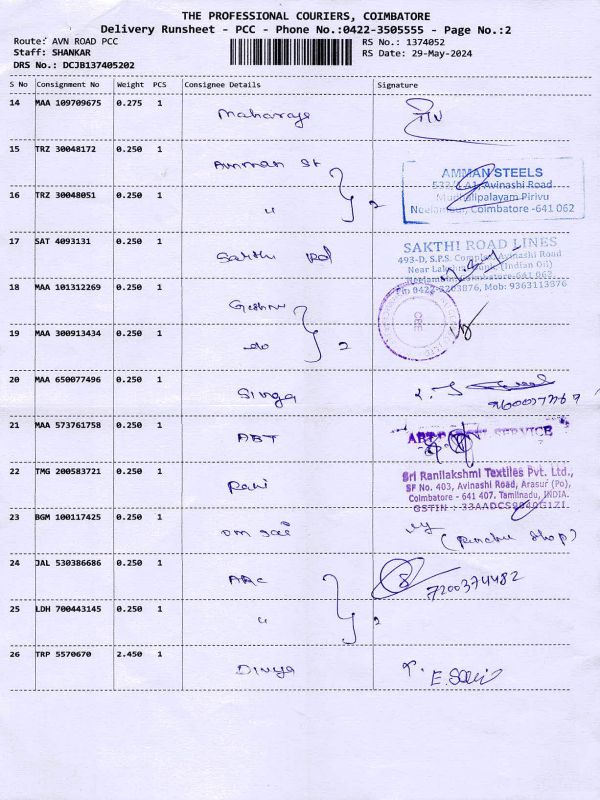 THE PROFESSIONAL COURIERS, COIMBATORE
Delivery Runsheet - PCC - Phone No.:0422-3505555 - Page No.:2
Route: AVN ROAD PCC
RS No.: 1374052
Staff: SHANKAR
RS Date: 29-May-2024
DRS No.: DCJB137405202
S No Consignment No Weight PCS Consignee Details Signature
14 MAA 109709675 0.275 1 Maharaja
15 TRZ 30048172 0.250 1 Amman St
AMMAN STEELS
Avinashi Road
16 TRZ 30048051 0.250 1 " 2
Pirivu
Coimbatore -641 062
17 SAT 4093131 0.250 1 Sakthi Rd
SAKTHI ROAD LINES
493-D, S.P.S. Complex, Avinashi Road
(Indian Oil)
18 MAA 101312269 0.250 1
Mob: 9363113876
19 MAA 300913434 0.250 1 do 2
20 MAA 650077496 0.250 1 Singa
21 MAA 573761758 0.250 1 ABT
SERVICE
22 TMG 200583721 0.250 1 Rani
Sri Ranilakshmi Textiles Pvt. Ltd.,
SF No. 403, Avinashi Road, Arasur (Po),
Coimbatore - 641 407. Tamilnadu, INDIA.
23 BGM 100117425 0.250 1 om sai
24 JAL 530386686 0.250 1 ARC 7200374482
25 LDH 700443145 0.250 1 " 2
26 TRP 5570670 2.450 1 Divya